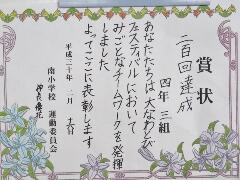 賞状
二百回達成
四年三組
あなたたちは大なわとび
フェスティバルにおいて
みごとなチームワークを発揮
しました
よってここに表彰します
平成二十年二月
南小学校 運動委員会